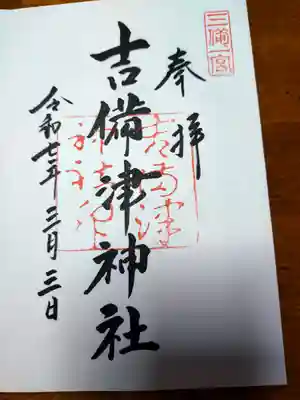 三備一宮
奉拝
吉備津神社
令和七年三月三日